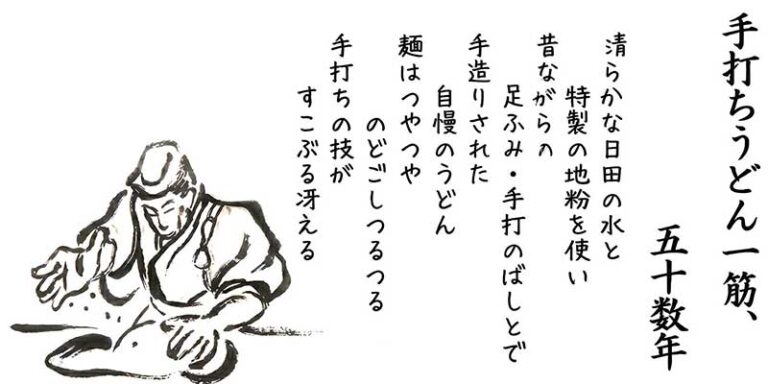 手打ちうどん一筋、
五十数年
清らかな日田の水と
特製の地粉を使い
昔ながらの
足ふみ・手打のばしとで
手造りされた
自慢のうどん
麺はつやつや
のどごしつるつる
手打ちの技が
すこぶる冴える